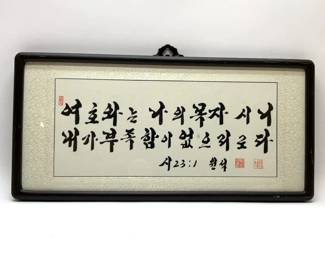 여호와는 나의 목자시니
내가 부족함이 없으리로다
시23:1